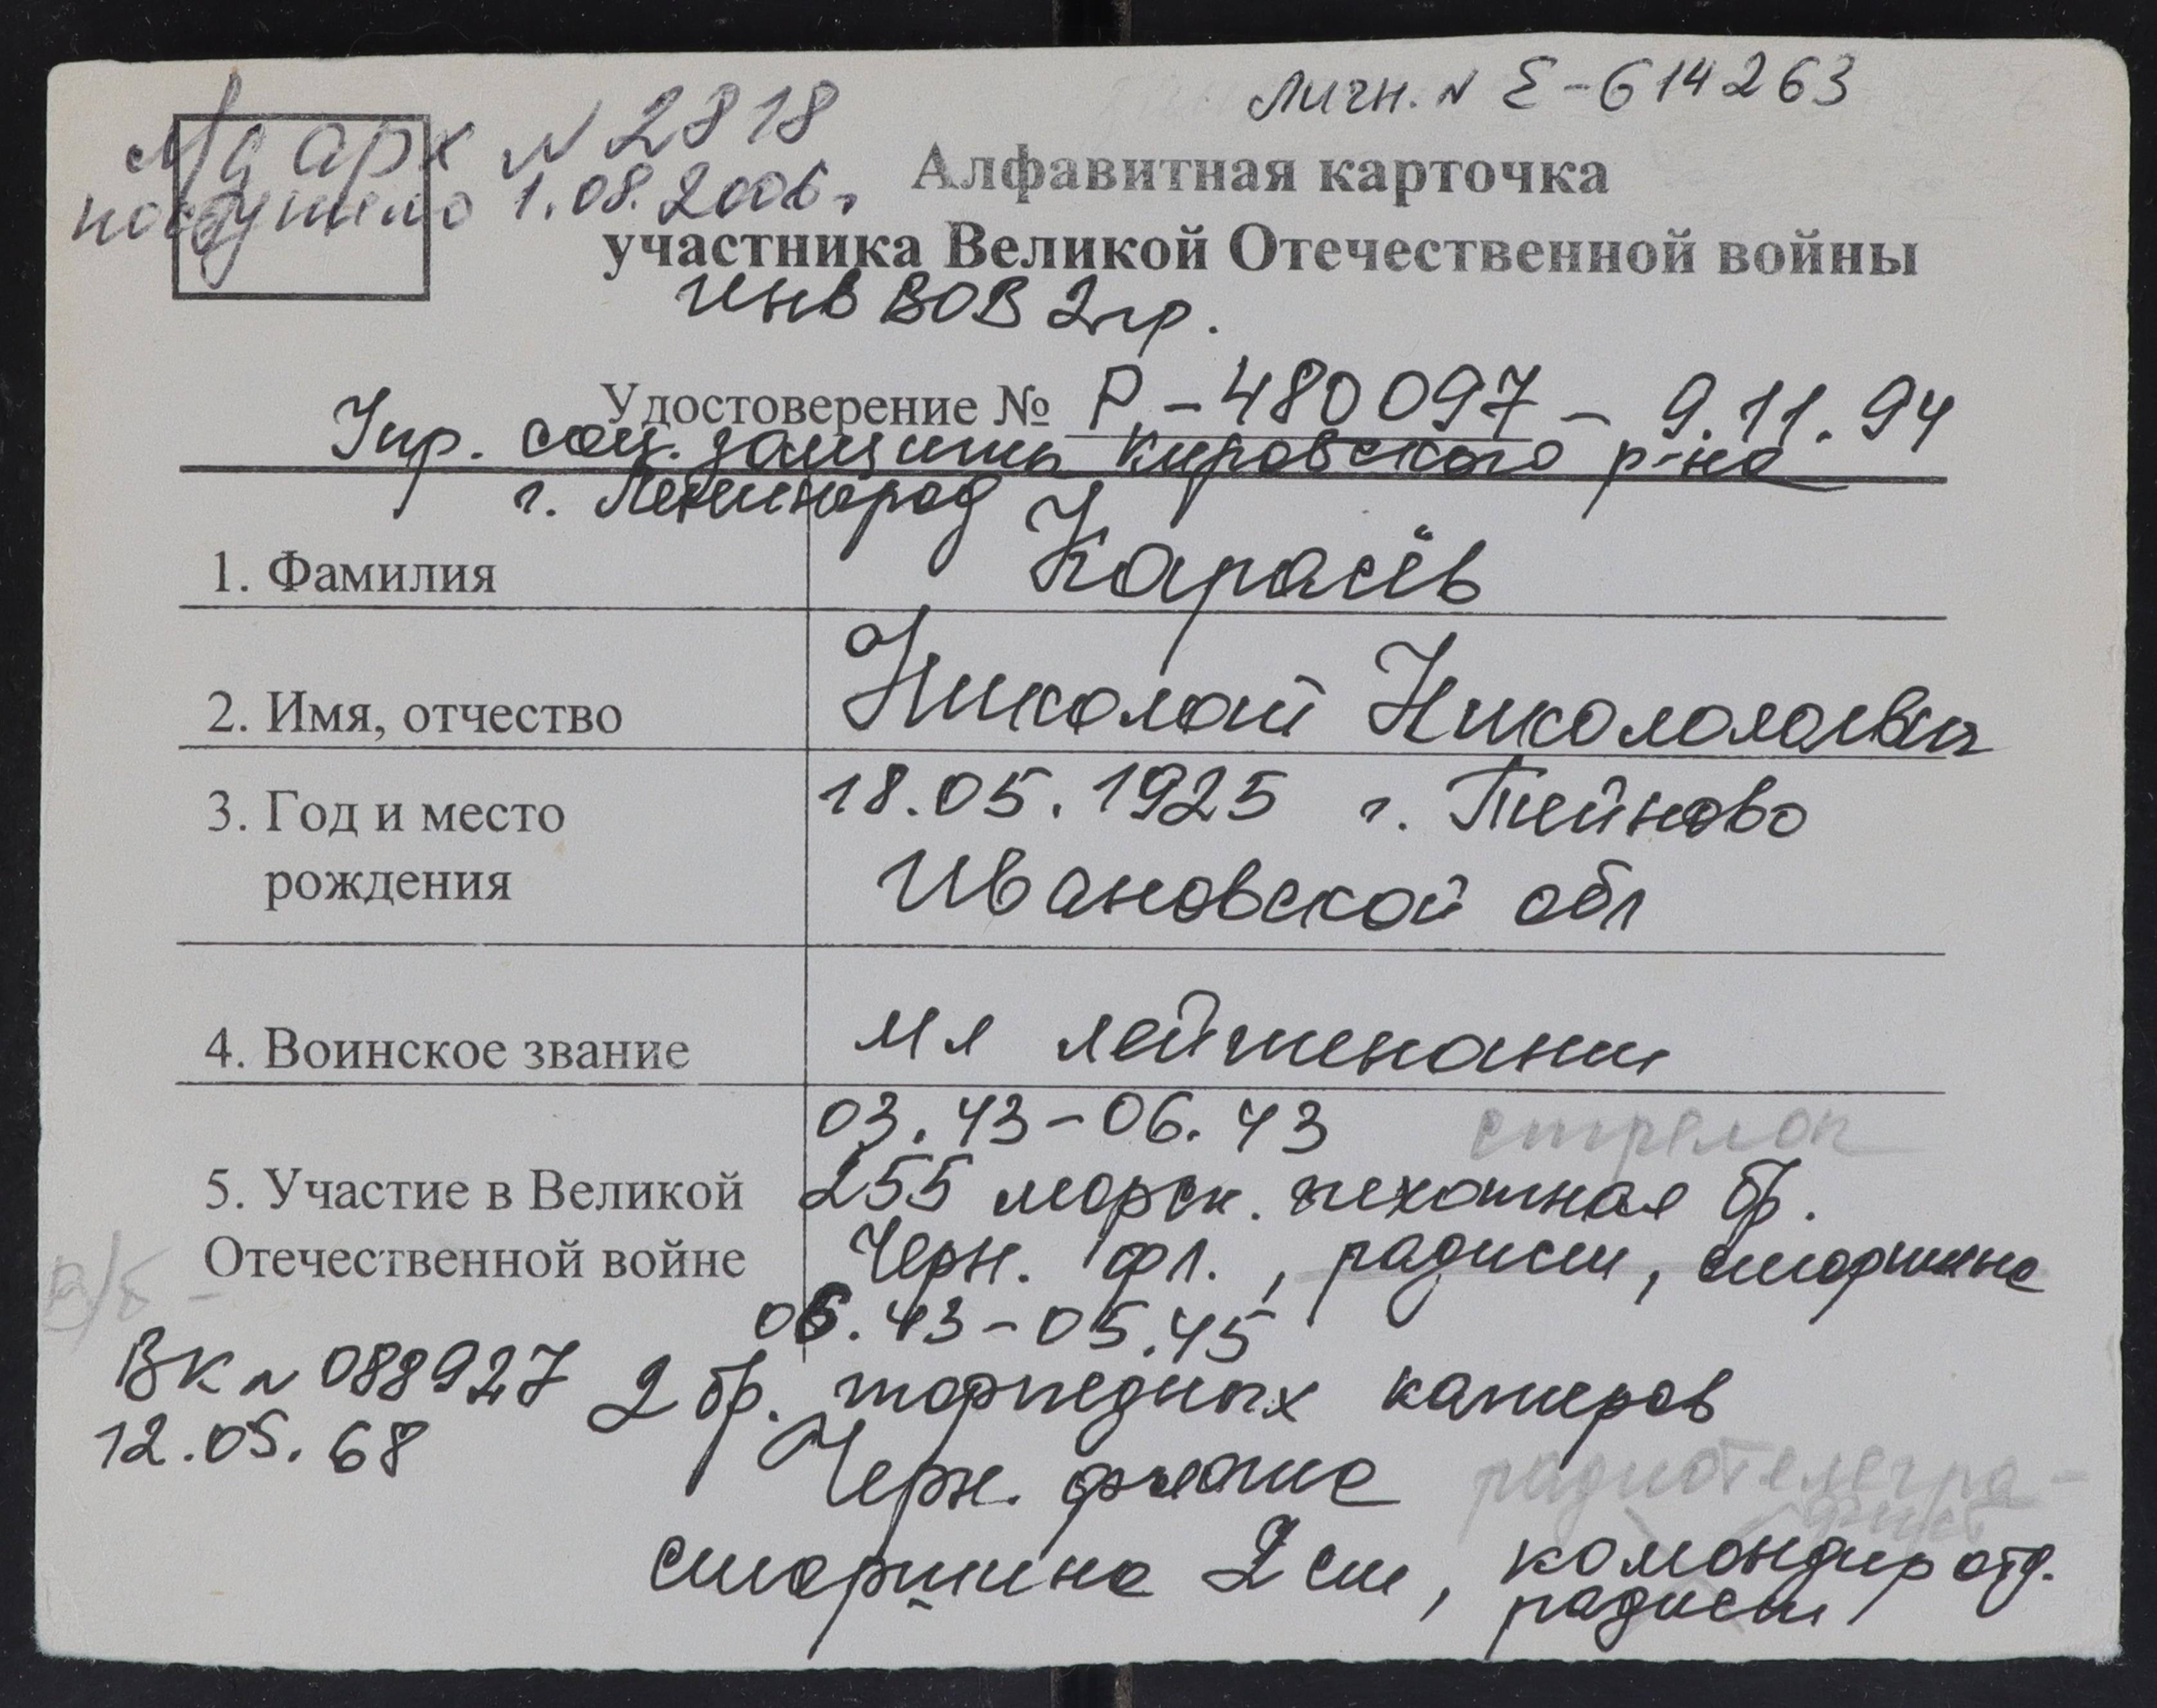 Личн. № Е-614263
Мд арх № 2818
поступило 1.08.2006г.
Алфавитная карточка
участника Великой Отечественной войны
инв ВОВ 2 гр.
Удостоверение № Р-480097 - 9.11.94
Упр. соц. защиты Кировского р-на
г. Ленинград
1. Фамилия Карасёв
2. Имя, отчество Николай Николаевич
3. Год и место 18.05.1925 г. Тейково
рождения Ивановской обл
4. Воинское звание мл лейтенант
03.43-06.43 стрелок
5. Участие в Великой 255 морск. пехотная бр.
Отечественной войне Черн. фл., радист, старшина
в/б -
06.43-05.45
ВК № 088927 2 бр. торпедных катеров
12.05.68
Черн. флота радиотелегра-
фист
старшина 2 ст, командир отд.
радист